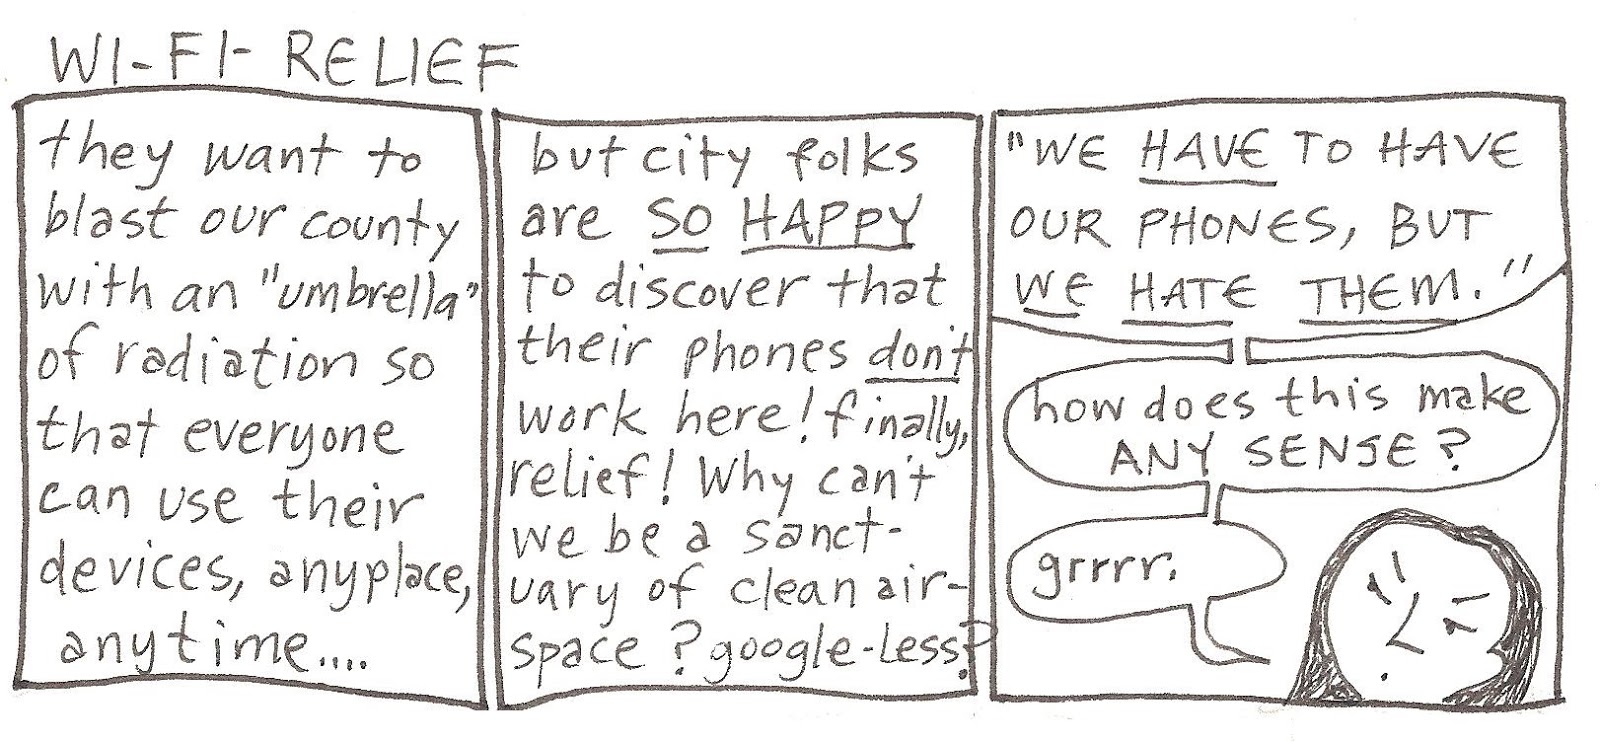 WI-FI-RELIEF
they want to
blast our county
with an "umbrella"
of radiation so
that everyone
can use their
devices, anyplace,
anytime....
but city folks
are SO HAPPY
to discover that
their phones don't
work here! finally,
relief! Why can't
we be a sanct-
uary of clean air-
space? google-less?
"WE HAVE TO HAVE
OUR PHONES, BUT
WE HATE THEM."
how does this make
ANY SENSE?
grrrr.